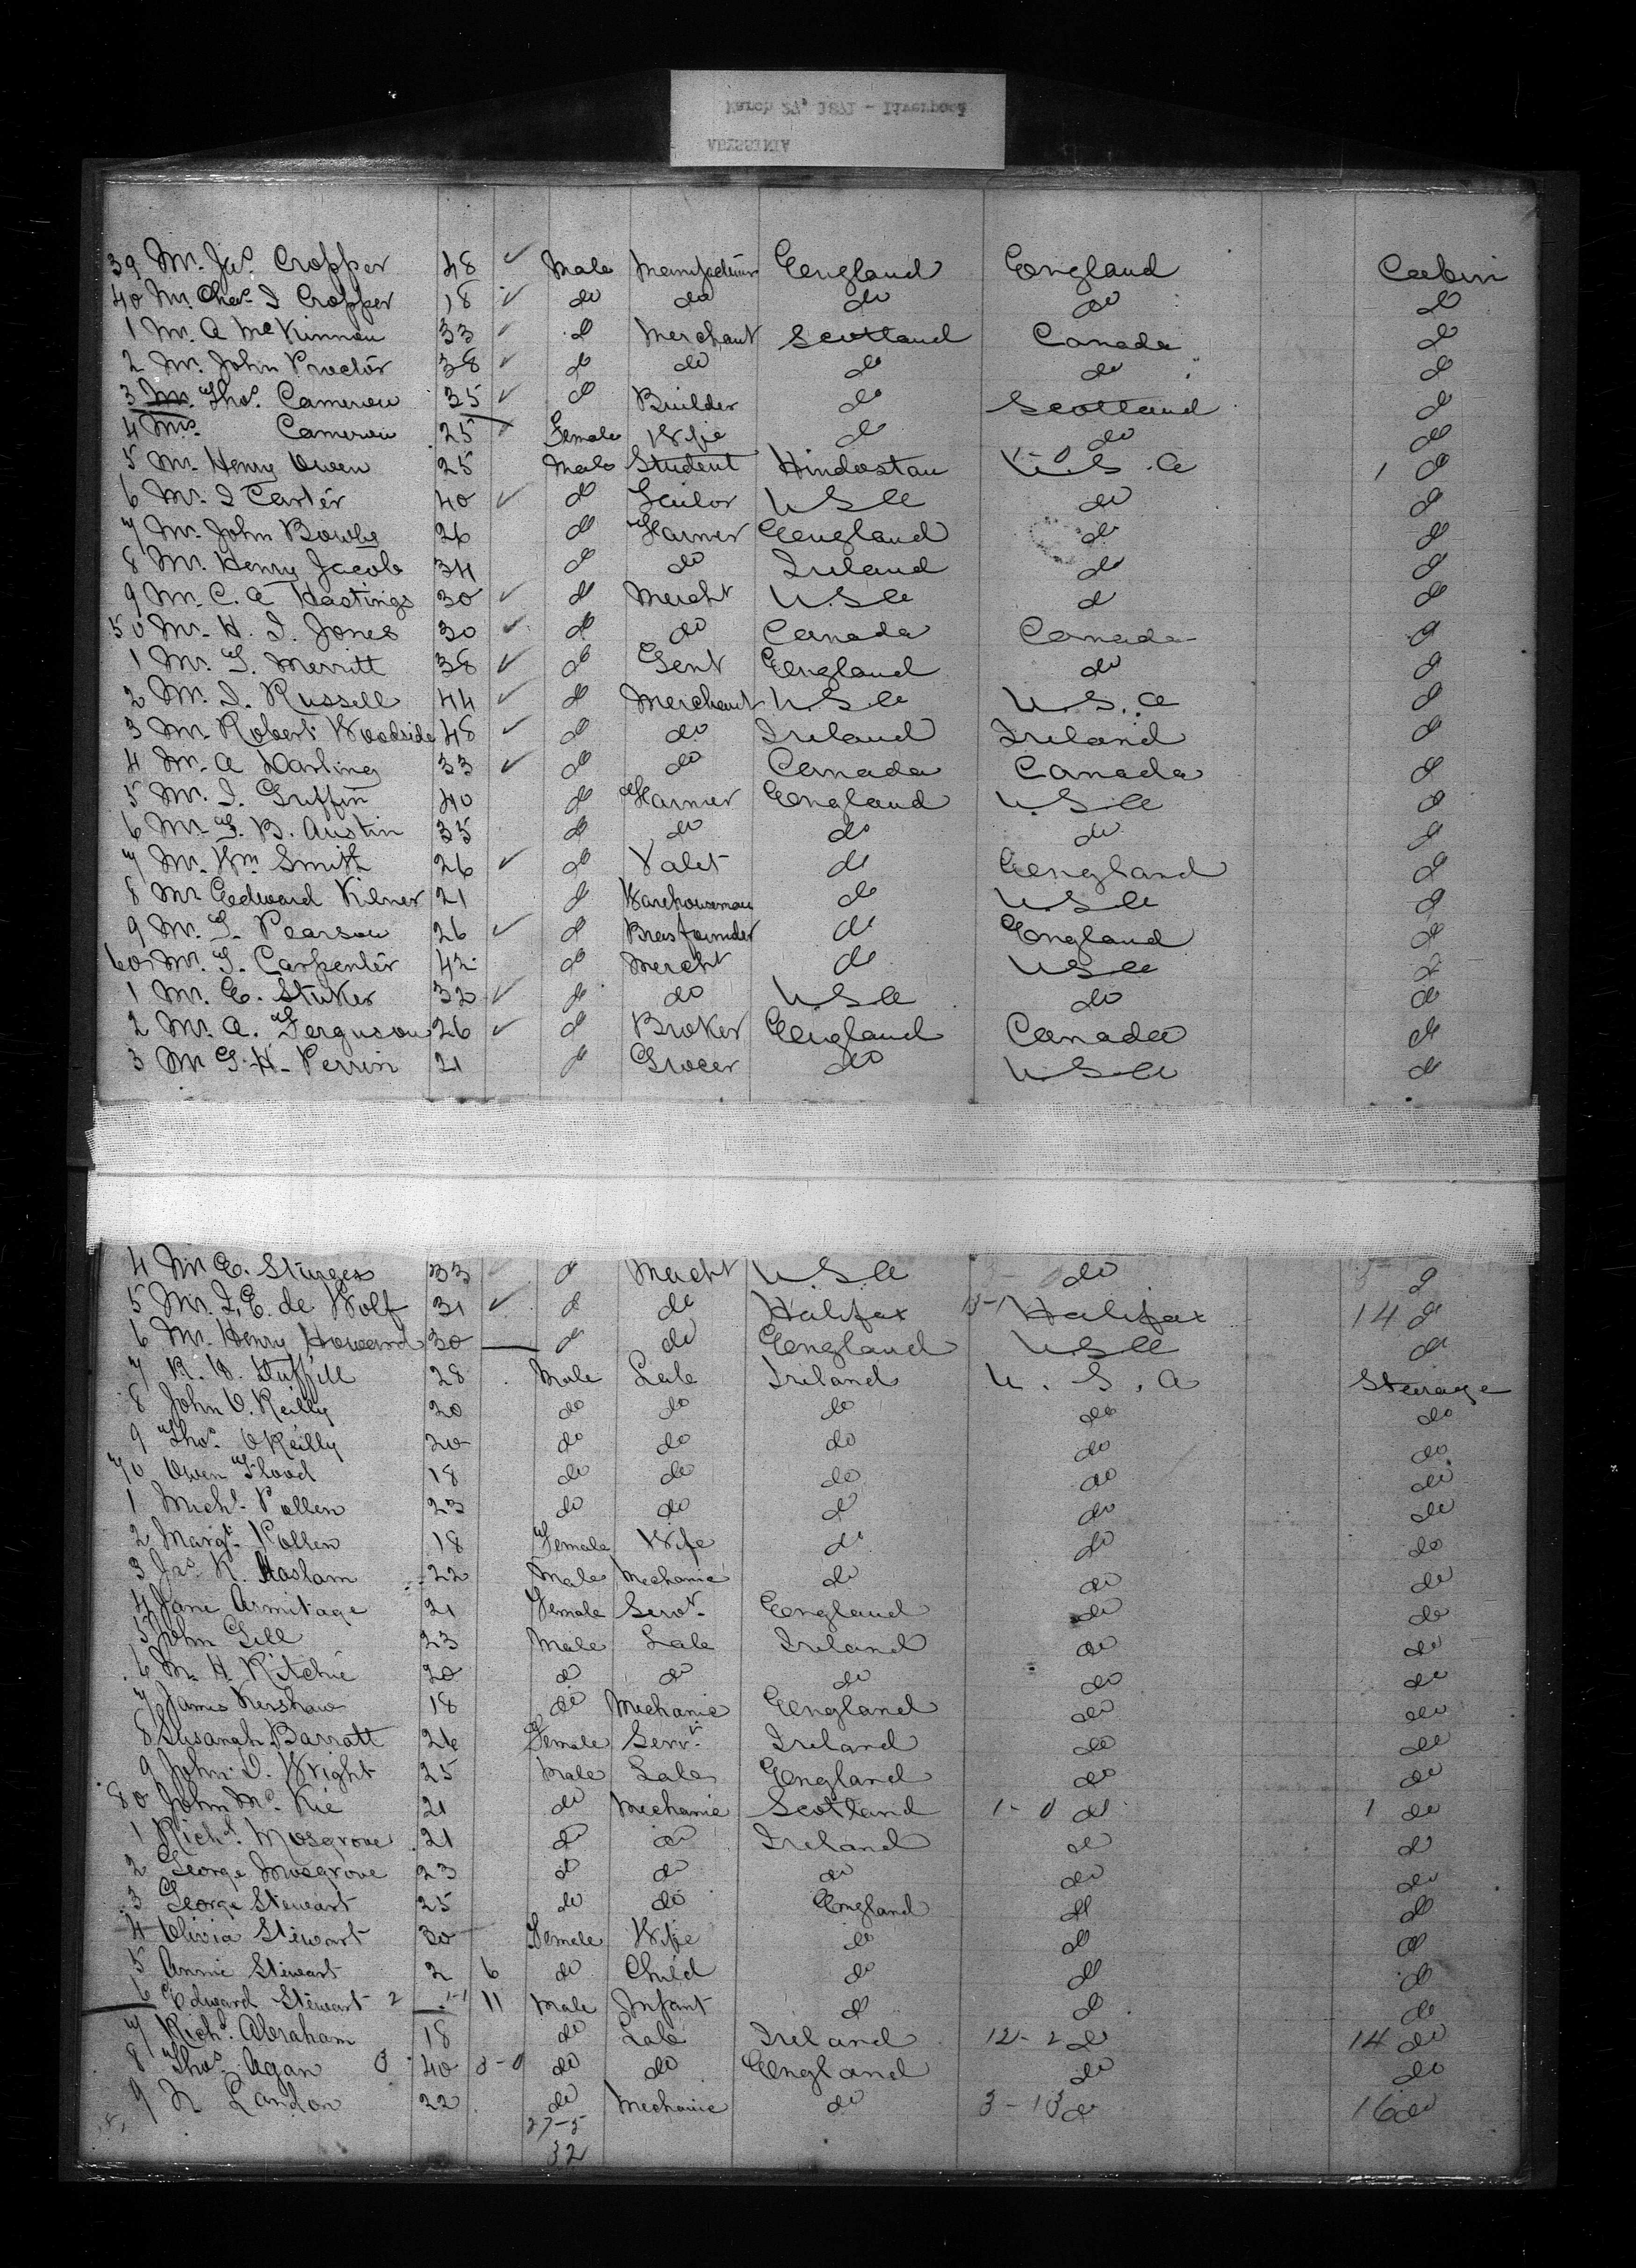 March 27, 1871 - Liverpool
ABYSSINIA
39 Mr. Jas. Cropper 48 ✓ Male Manufacturer England England Cabin
40 Mr. Chas. I Cropper 18 ✓ do do do do do
1 Mr. A McKinnon 33 ✓ do Merchant Scotland Canada do
2 Mr. John Proctor 38 ✓ do do do do do
3 Mr. Thos. Cameron 35 ✓ do Builder do Scotland do
4 Mrs. Cameron 25 Female Wife do do do
5 Mr. Henry Owen 25 Male Student Hindostan 1-0 U.S.A 1 do
6 Mr. I Carter 40 ✓ do Sailor USA do do
7 Mr. John 26 do Farmer England do do
8 Mr. Henry Jacob 34 do do Ireland do do
9 Mr. C. A Hastings 30 ✓ do Mercht U.S.A d do
50 Mr. H. I. Jones 30 ✓ do do Canada Canada do
1 Mr. T. Merritt 38 ✓ do Gent England do do
2 Mr. I. Russell 44 ✓ do Merchant U.S.A U.S.A do
3 Mr. Robert Woodside 48 ✓ do do Ireland Ireland do
4 Mr. A Darling 33 ✓ do do Canada Canada do
5 Mr. I. Griffin 40 do Farmer England USA do
6 Mr. T. B. Austin 35 do do do do do
7 Mr. Wm Smith 26 ✓ do Valet do England do
8 Mr Edward Kilner 21 do Warehouseman do USA do
9 Mr. T. Pearson 26 ✓ do Brasfounder do England do
60 Mr. T. Carpenter 42 do Mercht do USA do
1 Mr. E. Stuker 32 ✓ do do USA do do
2 Mr. A. Ferguson 26 ✓ do Broker England Canada do
3 Mr G. H. Perrin 21 do Grocer do USA do
4 Mr E. Sturges 33 do Mercht U.S.A do do
5 Mr. I. E. de Wolf 31 ✓ do do Halifax 13-1 Halifax 14 do
6 Mr. Henry Howard 30 do do England USA do
7 R. 28 Male Lab Ireland U.S.A Steerage
8 John O. Reilly 20 do do do do do
9 Thos. OReilly 20 do do do do do
70 Owen Flood 18 do do do do do
1 Michl. Pollen 23 do do do do do
2 Margt. Pollen 18 Female Wife do do do
3 Jas. R. Haslam 22 Male Mechanic do do do
4 Jane Armitage 21 Female Servt. England do do
5 John Gill 23 Male Lab Ireland do do
6 M. H. Ritchie 20 do do do do do
7 James Kershaw 18 do Mechanic England do do
8 Susanah Barratt 26 Female Servt. Ireland do do
9 John I. Wright 25 Male Lab England do do
80 John Mc. Kie 21 do Mechanic Scotland 1-0 do 1 do
1 Richd. Mosgrove 21 do do Ireland do do
2 George Mosgrove 23 do do do do do
3 George Stewart 25 do do England do do
4 Olivia Stewart 30 Female Wife do do do
5 Annie Stewart 2 6 do Child do do do
6 Edward Stewart 2 1-1 11 Male Infant do do do
7 Richd. Abraham 18 do Lab Ireland 12-2 do 14 do
8 Thos. Agan 0 40 3-0 do do England do do
9 N Landon 22 do Mechanic do 3-13 do 16 do
27-5
32